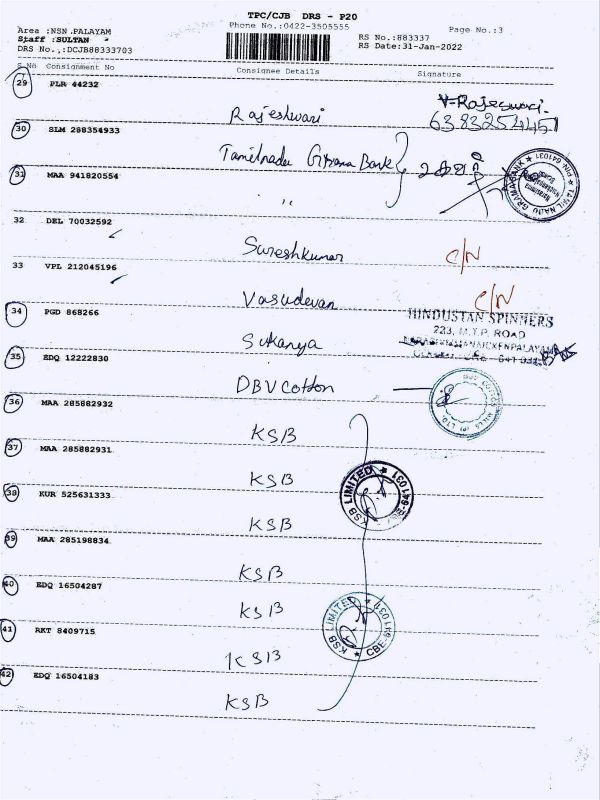 TPC/CJB DRS - P20
Phone No.:0422-3505555
Page No.:3
Area :NSN.PALAYAM
Staff :SULTAN
DRS No.,:DCJB88333703
RS No.:883337
RS Date:31-Jan-2022
S No Consignment No Consignee Details Signature
29 PLR 44232 Rajeshwari V-Rajeswari.
6383254457
30 SLM 288354933 Tamilnadu Grama Bank
31 MAA 941820554 "
TAMIL NADU GRAMA BANK
32 DEL 70032592 Sureshkumar C/N
33 VPL 212045196 Vasudevan C/N
34 PGD 868266 Sukanya
HINDUSTAN SPINNERS
223, M.T.P. ROAD
35 EDQ 12222830 DBV Cotton
36 MAA 285882932 KSB
37 MAA 285882931 KSB
KSB LIMITED
38 KUR 525631333 KSB
39 MAA 285198834 KSB
40 EDQ 16504287 KSB
KSB LIMITED CBE-641 031
41 RKT 8409715 KSB
42 EDQ 16504183 KSB